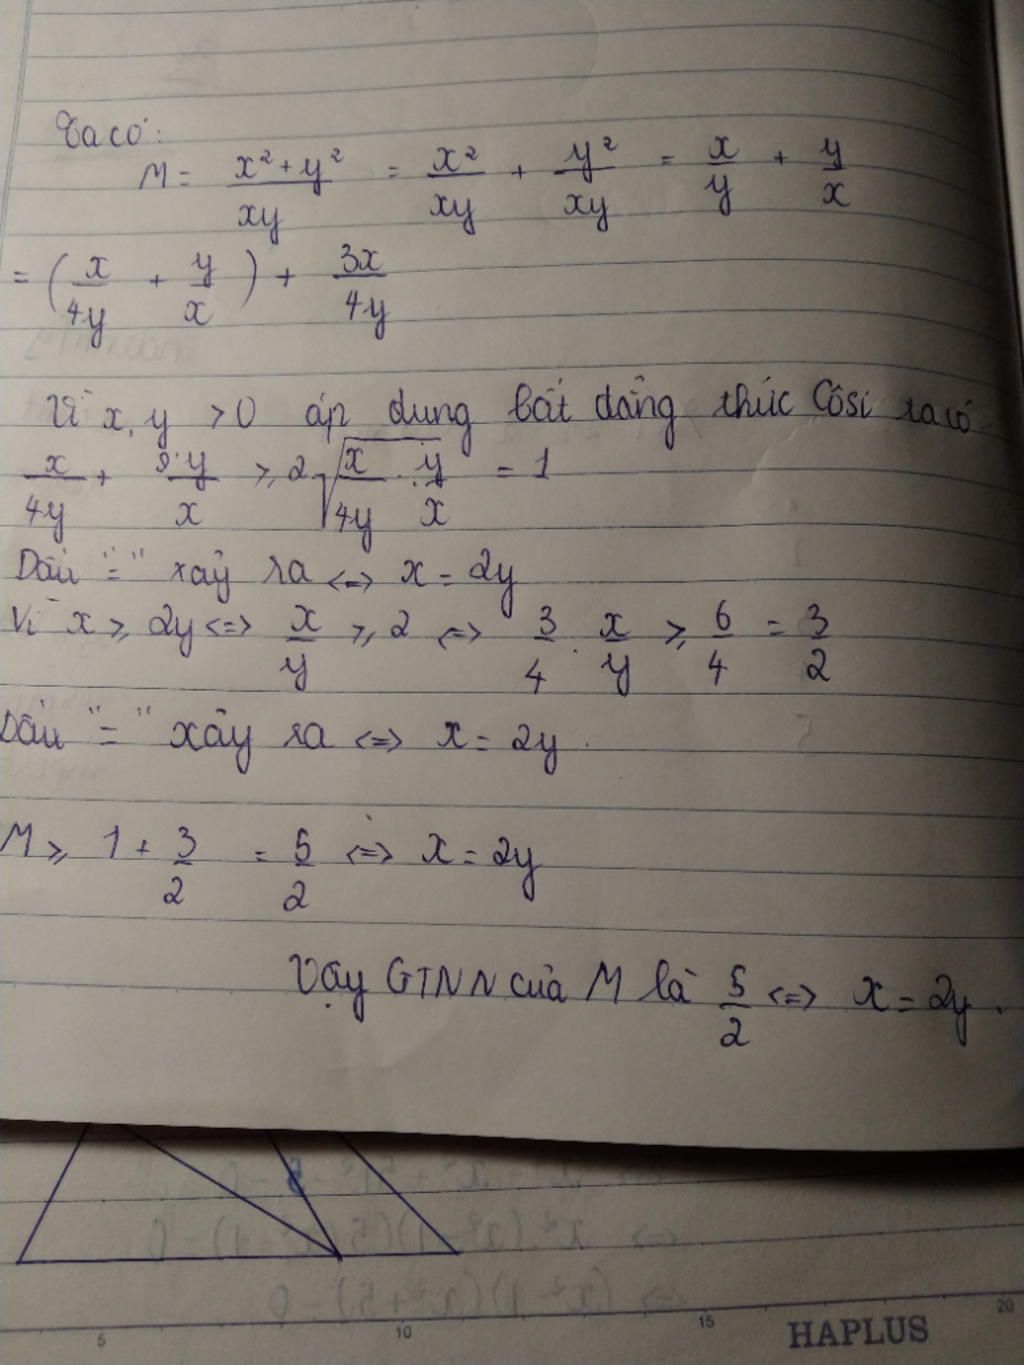 Ta có:
M = \frac{x² + y²}{xy} = \frac{x²}{xy} + \frac{y²}{xy} = \frac{x}{y} + \frac{y}{x}
= (\frac{x}{4y} + \frac{y}{x}) + \frac{3x}{4y}
Vì x, y > 0 áp dung bất đẳng thức Côsi ta có
\frac{x}{4y} + \frac{y}{x} ≥ 2\sqrt{\frac{x}{4y} . \frac{y}{x}} = 1
Dấu "=" xảy ra <=> x = 2y
Vì x ≥ 2y <=> \frac{x}{y} ≥ 2 <=> \frac{3}{4} . \frac{x}{y} ≥ \frac{6}{4} = \frac{3}{2}
Dấu "=" xảy ra <=> x = 2y .
M ≥ 1 + \frac{3}{2} = \frac{5}{2} <=> x = 2y
Vậy GTNN của M là \frac{5}{2} <=> x = 2y .
5 10 15 20
HAPLUS